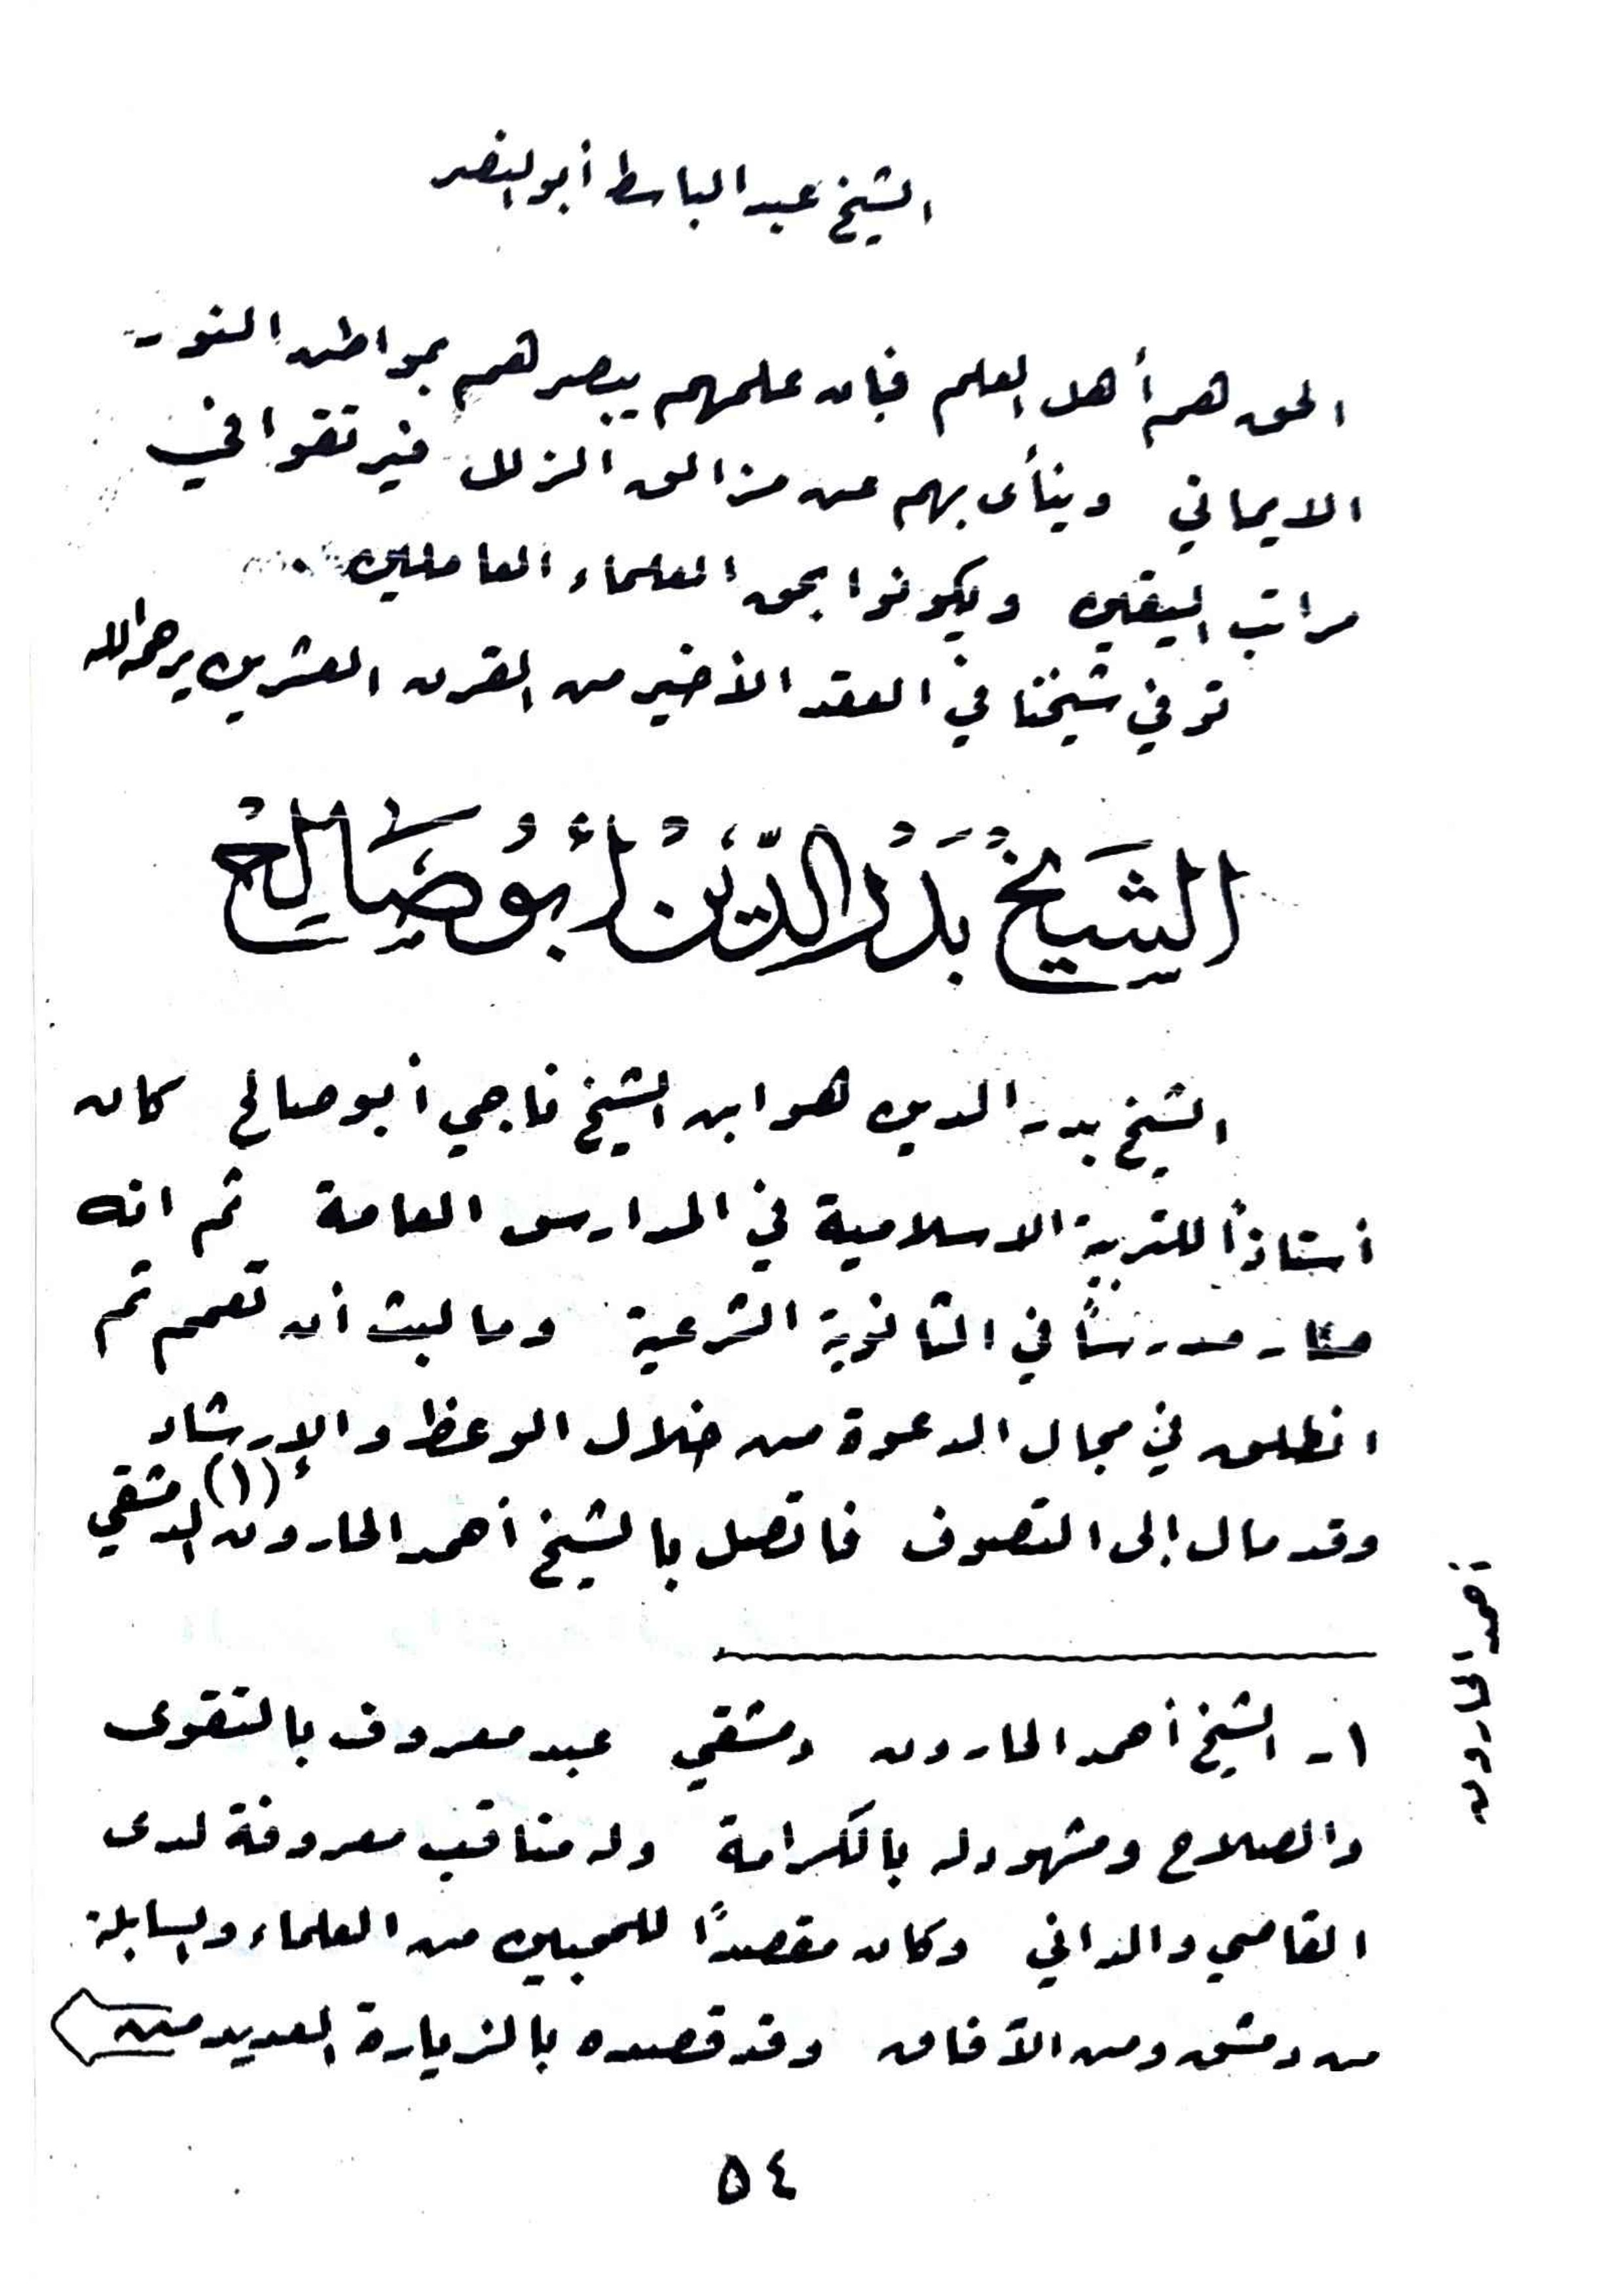 الشيخ عبد الباسط أبو النصر
الحق هم أهل العلم فإن علمهم يبصرهم بمواطن النور
الايماني وينأى بهم عن مزالق الزلل فيرتقوا في
مراتب اليقين ويكونوا بحق العلماء العاملين .
توفي شيخنا في العقد الأخير من القرن العشرين يرحمه الله
الشَيخُ بَدْرُ الدِّيْنْ أَبُو صَالِحْ
الشيخ بدر الدين هو ابن الشيخ ناجي أبو صالح كان
أستاذاً للتربية الاسلامية في المدارس العامة ثم انه
صار مدرساً في الثانوية الشرعية وما لبث أن تعمم ثم
انطلق في مجال الدعوة من خلال الوعظ والإرشاد
وقد مال إلى التصوف فاتصل بالشيخ أحمد الحارون (١) الدمشقي
أحمد الحارون
١ـ الشيخ أحمد الحارون دمشقي عبد معروف بالتقوى
والصلاح ومشهود له بالكرامة وله مناقب معروفة لدى
القاصي والداني وكان مقصداً للمحبين من العلماء والسابلة
من دمشق ومن الآفاق وقد قصده بالزيارة العديد من
٥٤